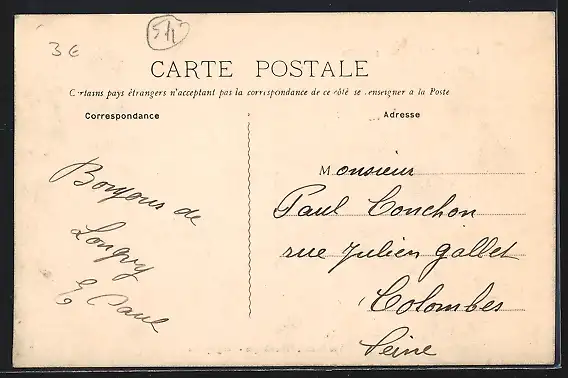 3 €
54
CARTE POSTALE
Certains pays étrangers n'acceptant pas la correspondance de ce côté se renseigner a la Poste
Correspondance
Adresse
Bonjour de
Longwy
Paul
Monsieur
Paul Conchon
rue Julien Gallet
Colombes
Seine